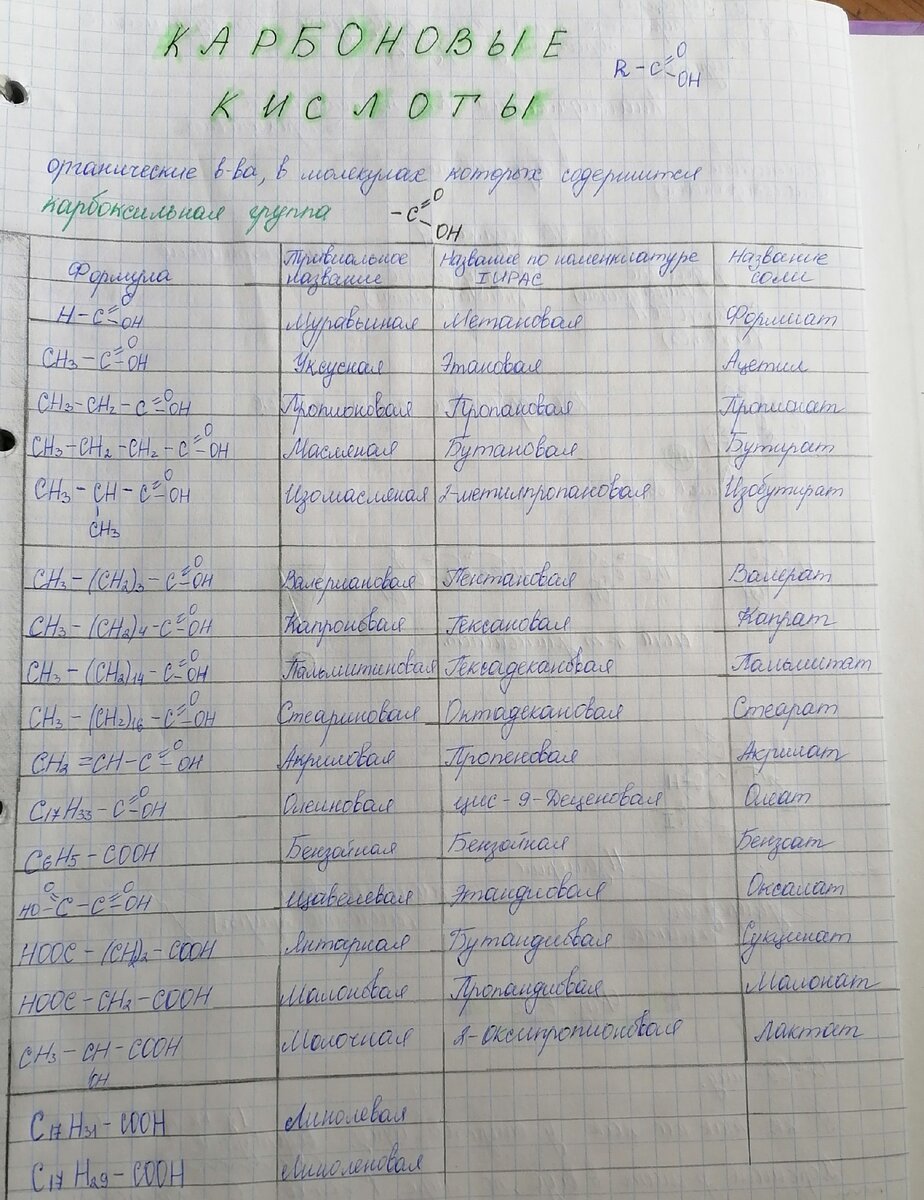 КАРБОНОВЫЕ
R-C=O-OH
КИСЛОТЫ
органические в-ва, в молекулах которых содержится
карбоксильная группа -C=O-OH
Формула Тривиальное название Название по номенклатуре IUPAC Название соли
H-C=O-OH Муравьиная Метановая Формиат
CH3-C=O-OH Уксусная Этановая Ацетил
CH3-CH2-C=O-OH Пропионовая Пропановая Пропионат
CH3-CH2-CH2-C=O-OH Масляная Бутановая Бутират
CH3-CH-C=O-OH Изомасляная 2-метилпропановая Изобутират
CH3
CH3-(CH2)3-C=O-OH Валериановая Пентановая Валерат
CH3-(CH2)4-C=O-OH Капроновая Гексановая Капрат
CH3-(CH2)14-C=O-OH Пальмитиновая Гексадекановая Пальмитат
CH3-(CH2)16-C=O-OH Стеариновая Октадекановая Стеарат
CH2=CH-C=O-OH Акриловая Пропеновая Акрилат
C17H33-C=O-OH Олеиновая цис-9-Деценовая Олеат
C6H5-COOH Бензойная Бензойная Бензоат
HO-C=O-C=O-OH Щавелевая Этандиовая Оксалат
HOOC-(CH)2-COOH Янтарная Бутандиовая Сукцинат
HOOC-CH2-COOH Малоновая Пропандиовая Малонат
CH3-CH-COOH Молочная 2-Оксипропионовая Лактат
OH
C17H31-COOH Линолевая
C17H29-COOH Линоленовая